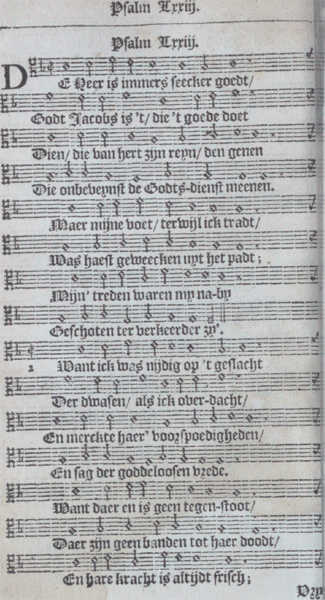 Psalm Lxxiij.
Psalm Lxxiij.
DE Heer is immers seecker goedt/
Godt Jacobs is 't/ die 't goede doet
Dien/ die van hert zijn reyn/ den genen
Die onbeveynst de Godts-dienst meenen.
Maer mijne voet/ terwijl ick tradt/
Was haest geweecken uyt het padt;
Mijn' treden waren my na-by
Geschoten ter verkeerder zy'.
2 Want ick was nijdig op 't geslacht
Der dwasen/ als ick over-dacht/
En merckte haer' voorspoedigheden/
En sag der goddeloosen vrede.
Want daer en is geen tegen-stoot/
Daer zijn geen banden tot haer doodt/
En hare kracht is altijdt frisch;
Dry